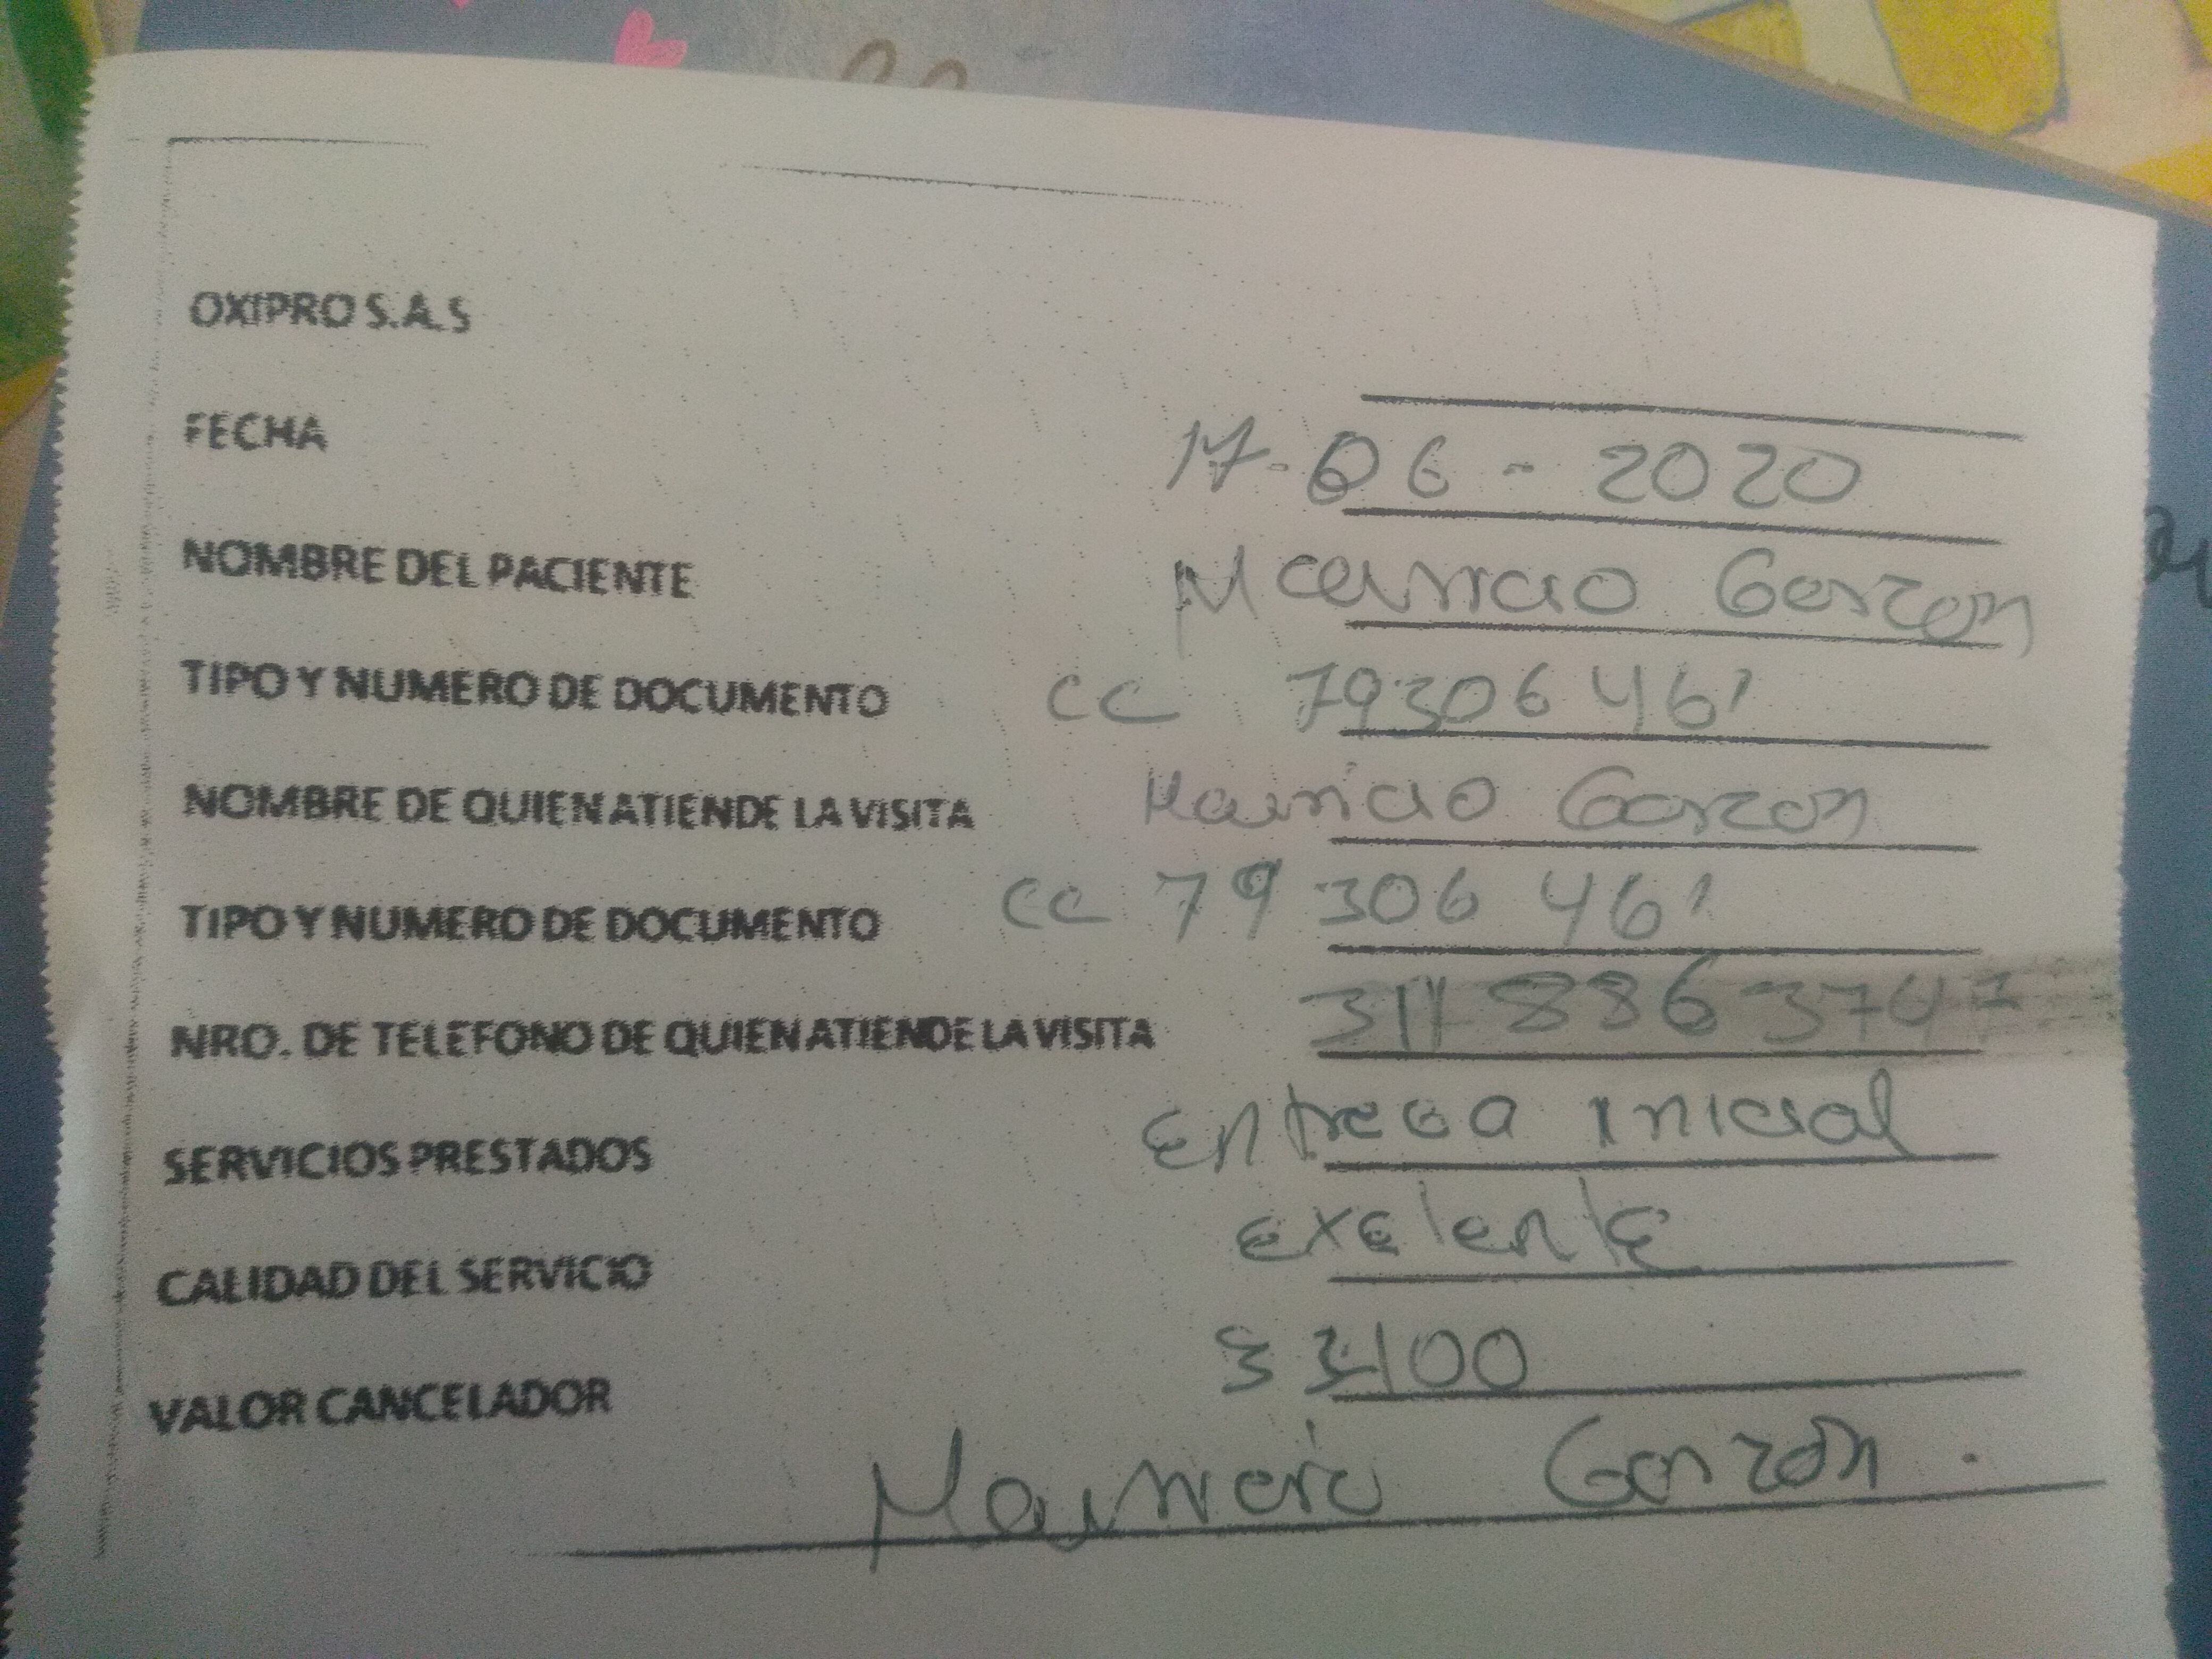 OXIPRO S.A.S
FECHA 17-06-2020
NOMBRE DEL PACIENTE Mauricio Garzon
TIPO Y NUMERO DE DOCUMENTO CC 79306461
NOMBRE DE QUIEN ATIENDE LA VISITA Mauricio Garzon
TIPO Y NUMERO DE DOCUMENTO CC 79 306 461
NRO. DE TELEFONO DE QUIEN ATIENDE LA VISITA
SERVICIOS PRESTADOS Entrega inicial
CALIDAD DEL SERVICIO Exelente
VALOR CANCELADOR
Mauricio Garzon.